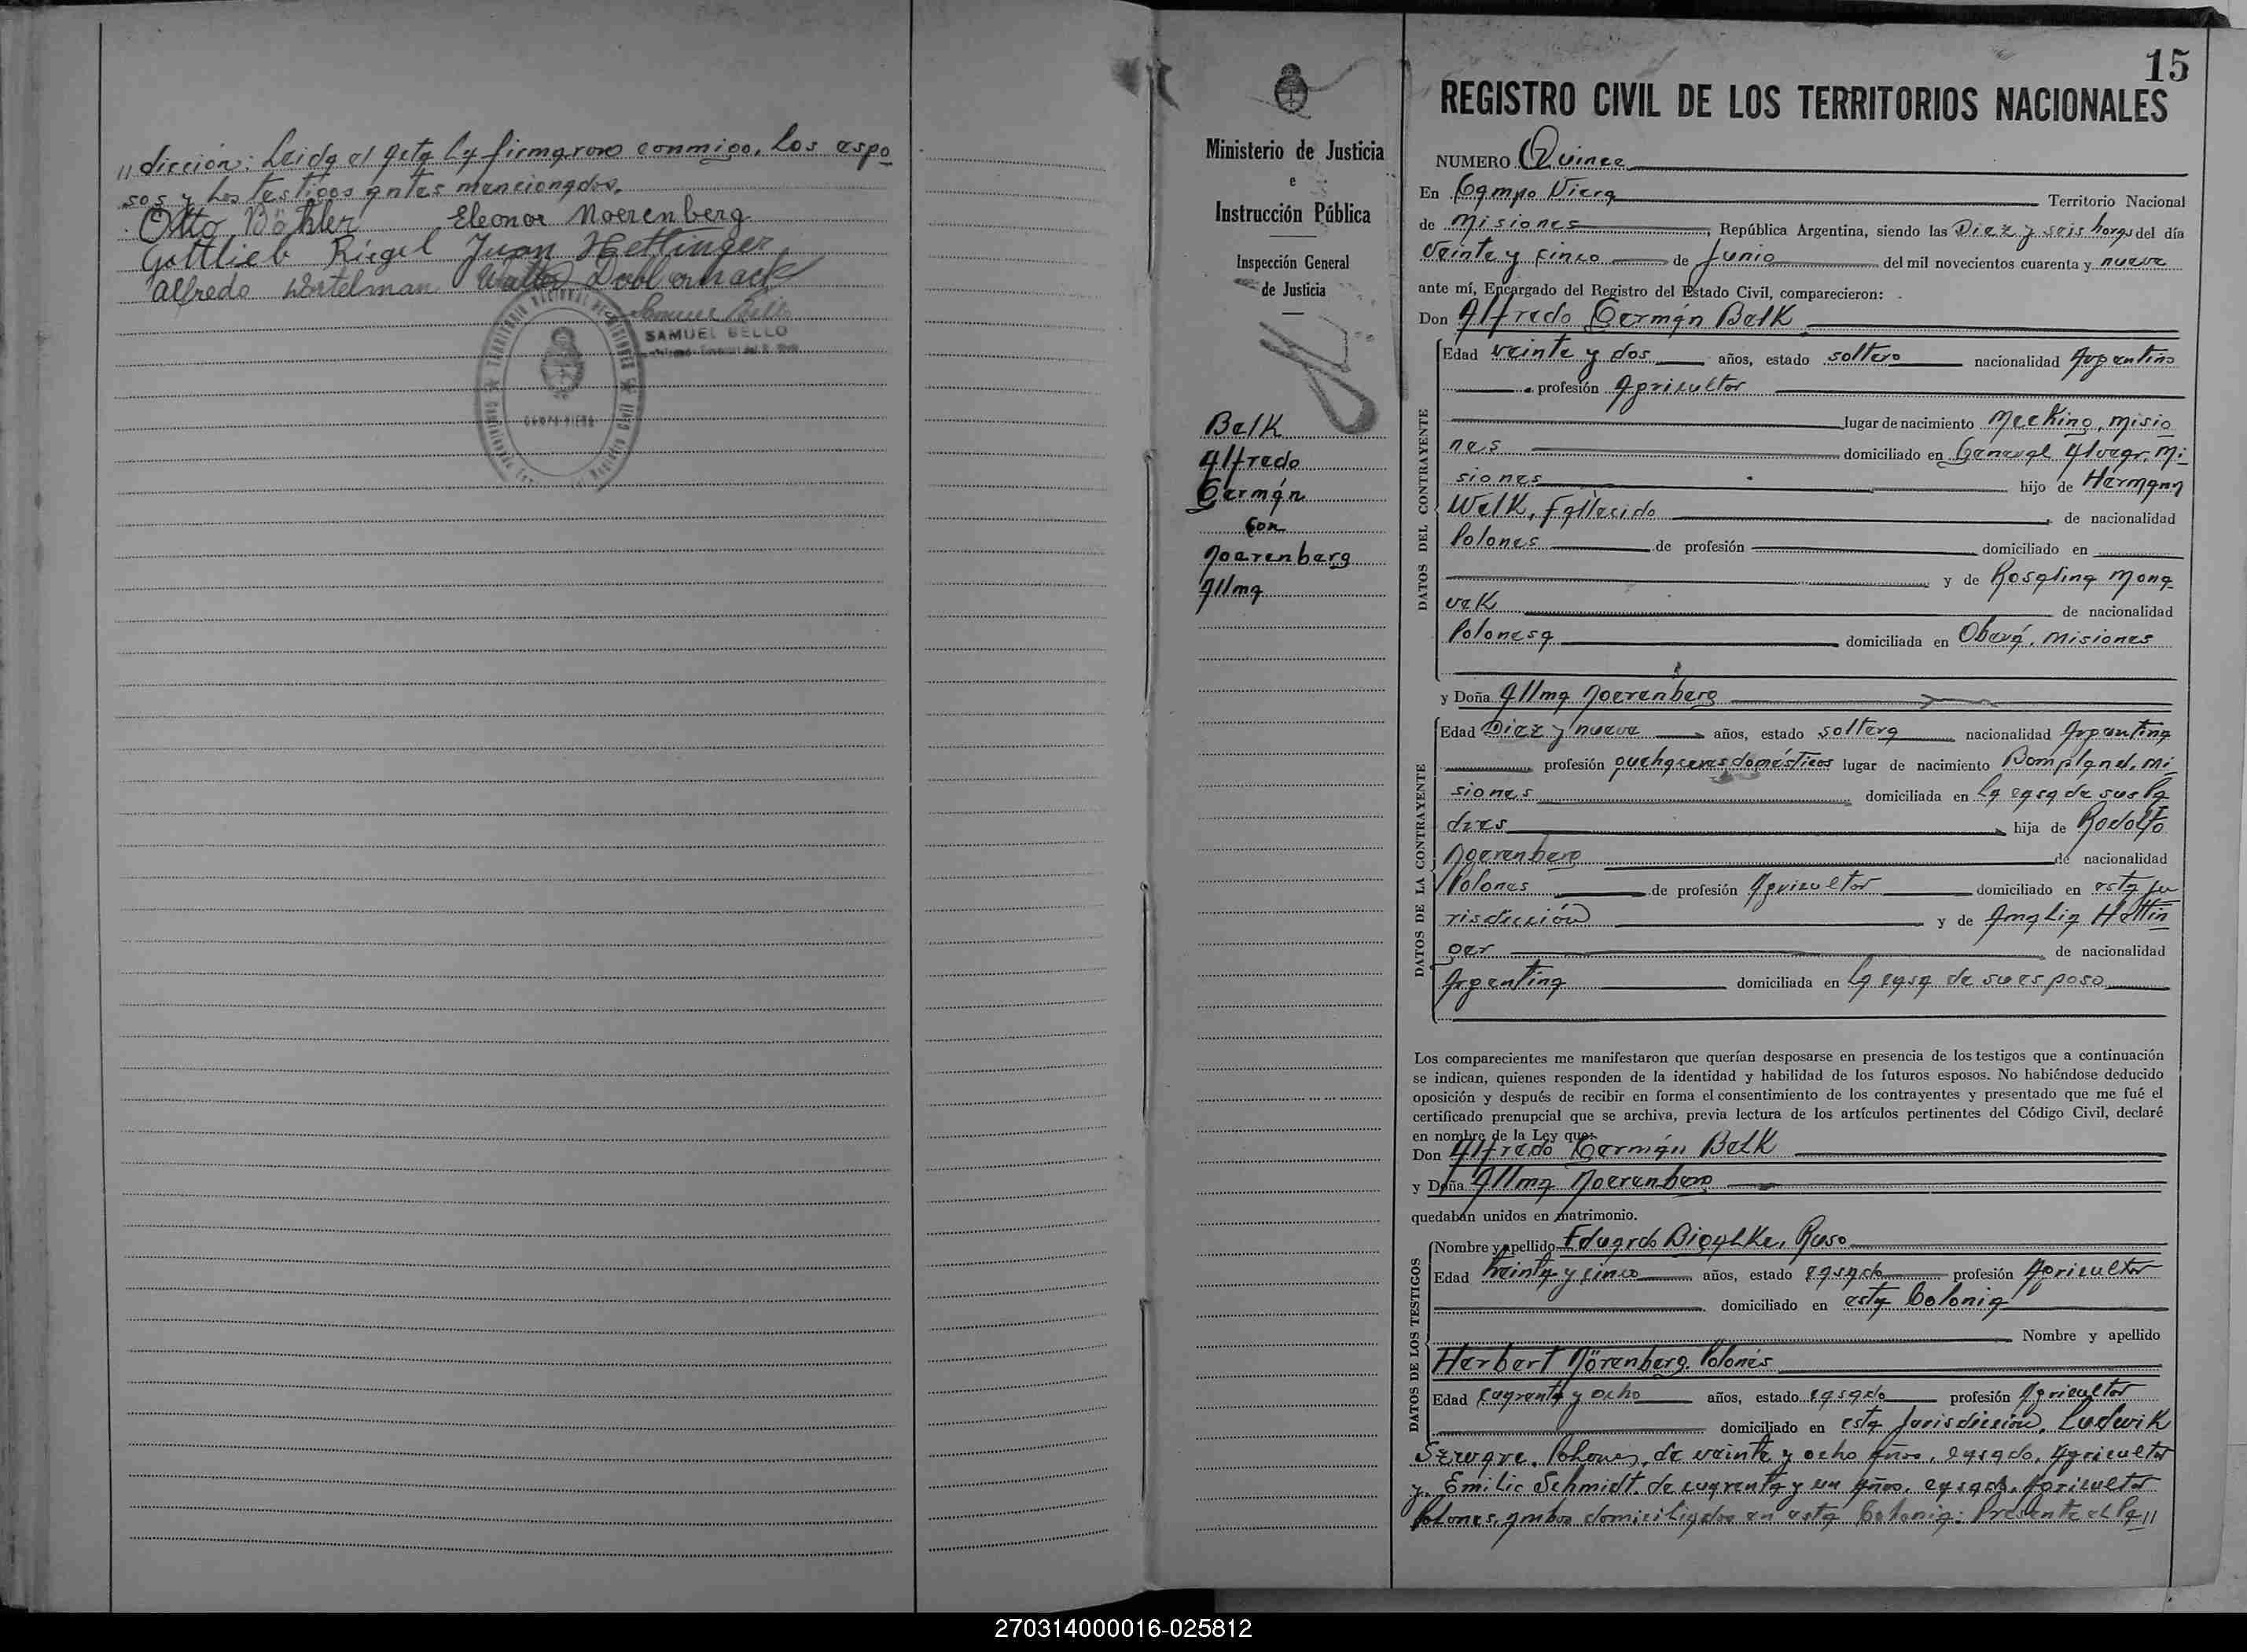 // dicción: Leida el Acta la firmaron conmigo, los espo
sos y los testigos antes mencionados.
Otto Böhler Eleonor Noerenberg
Gottlieb Riegel Juan Hettinger
Alfredo Wortelman Walter
SAMUEL BELLO
TERRITORIO NACIONAL DE MISIONES
CAMPO VIERA
Registro Civil
15
REGISTRO CIVIL DE LOS TERRITORIOS NACIONALES
Ministerio de Justicia
e
Instrucción Pública
Inspección General
de Justicia
Belk
Alfredo
Germán
con
Noerenberg
Allma
NUMERO Quince
En Campo Viera Territorio Nacional
de Misiones, República Argentina, siendo las Diez y seis horas del día
Veinte y cinco de Junio del mil novecientos cuarenta y nueve
ante mí, Encargado del Registro del Estado Civil, comparecieron:
Don Alfredo Germán Belk
DATOS DEL CONTRAYENTE
Edad veinte y dos años, estado soltero nacionalidad Argentino
profesión Agricultor
lugar de nacimiento Mecking, Misio
nes domiciliado en General Alvear, Mi
siones hijo de Hermann
Welk, Fallecido de nacionalidad
Polones de profesión domiciliado en
y de Rosalina Mona
vek de nacionalidad
Polonesa domiciliada en Oberá, Misiones
y Doña Allma Noerenberg
DATOS DE LA CONTRAYENTE
Edad Diez y nueve años, estado soltera nacionalidad Argentina
profesión quehaceres domésticos lugar de nacimiento Bompland, Mi
siones domiciliada en la casa de sus Pa
dres hija de Rodolfo
Noerenberg de nacionalidad
Polones de profesión Agricultor domiciliado en esta ju
risdicción y de Amalia Hettin
ger de nacionalidad
Argentina domiciliada en la casa de su esposo
Los comparecientes me manifestaron que querían desposarse en presencia de los testigos que a continuación
se indican, quienes responden de la identidad y habilidad de los futuros esposos. No habiéndose deducido
oposición y después de recibir en forma el consentimiento de los contrayentes y presentado que me fué el
certificado prenupcial que se archiva, previa lectura de los artículos pertinentes del Código Civil, declaré
en nombre de la Ley que:
Don Alfredo Germán Belk
y Doña Allma Noerenberg
quedaban unidos en matrimonio.
DATOS DE LOS TESTIGOS
Nombre y apellido Eduardo Bigalke, Ruso
Edad treinta y cinco años, estado casado profesión Agricultor
domiciliado en esta Colonia
Nombre y apellido
Herbert Nörenberg. Polonés
Edad cuarenta y ocho años, estado casado profesión Agricultor
domiciliado en esta Jurisdicción, Ludwik
Polones, de veinte y ocho años, casado, Agricultor
y Emilio Schmidt de cuarenta y un años, casado, Agricultor
Polones, ambos domiciliados en esta Colonia: Presente el Pa//
270314000016-025812